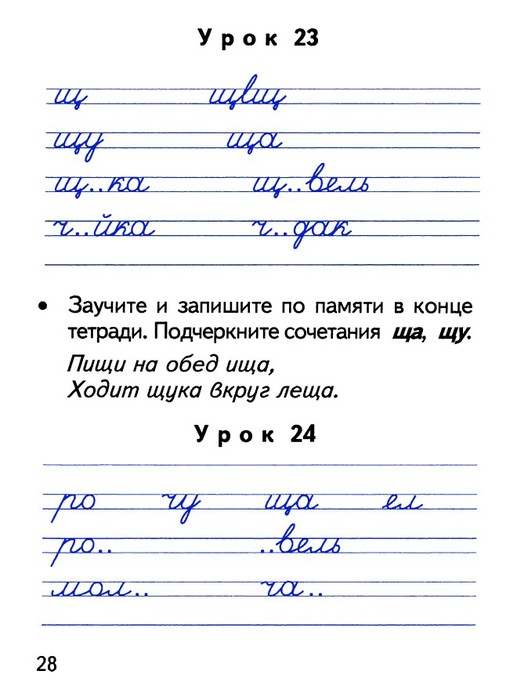 Урок 23
щ щвщ
щу ща
щ..ка щ..вель
ч..йка ч..дак
• Заучите и запишите по памяти в конце
тетради. Подчеркните сочетания ща, щу.
Пищи на обед ища,
Ходит щука вкруг леща.
Урок 24
ро чу ща ел
ро.. ..вель
мол.. ча..
28